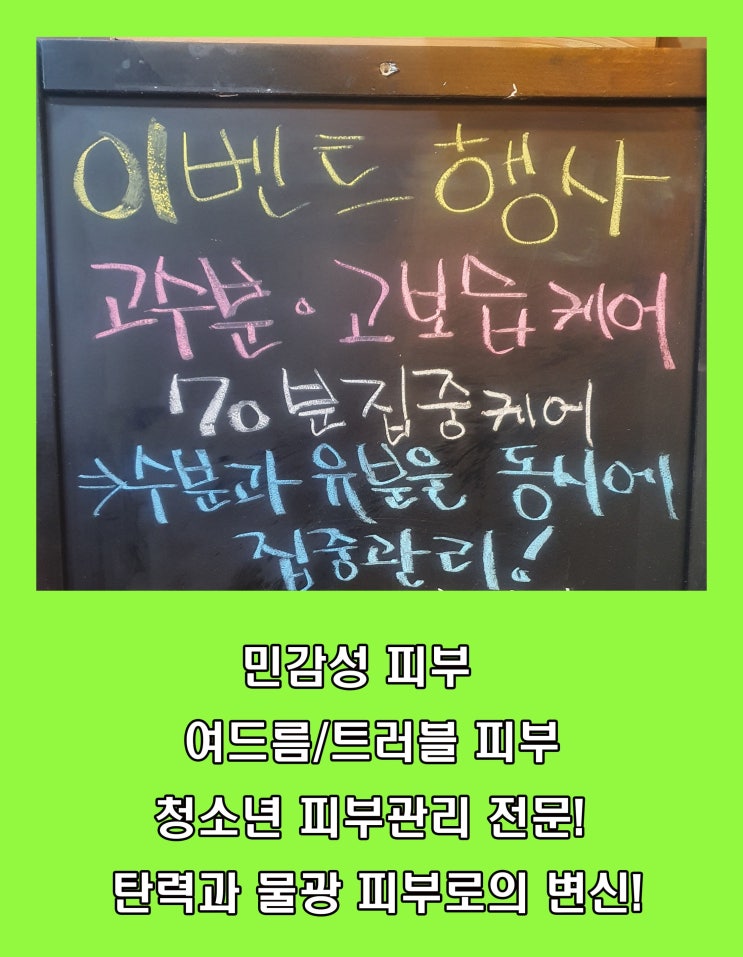 이벤트 행사
고수분 · 고보습 케어
70분 집중케어
→수분과 유분을 동시에
집중관리!
민감성 피부
여드름/트러블 피부
청소년 피부관리 전문!
탄력과 물광 피부로의 변신!